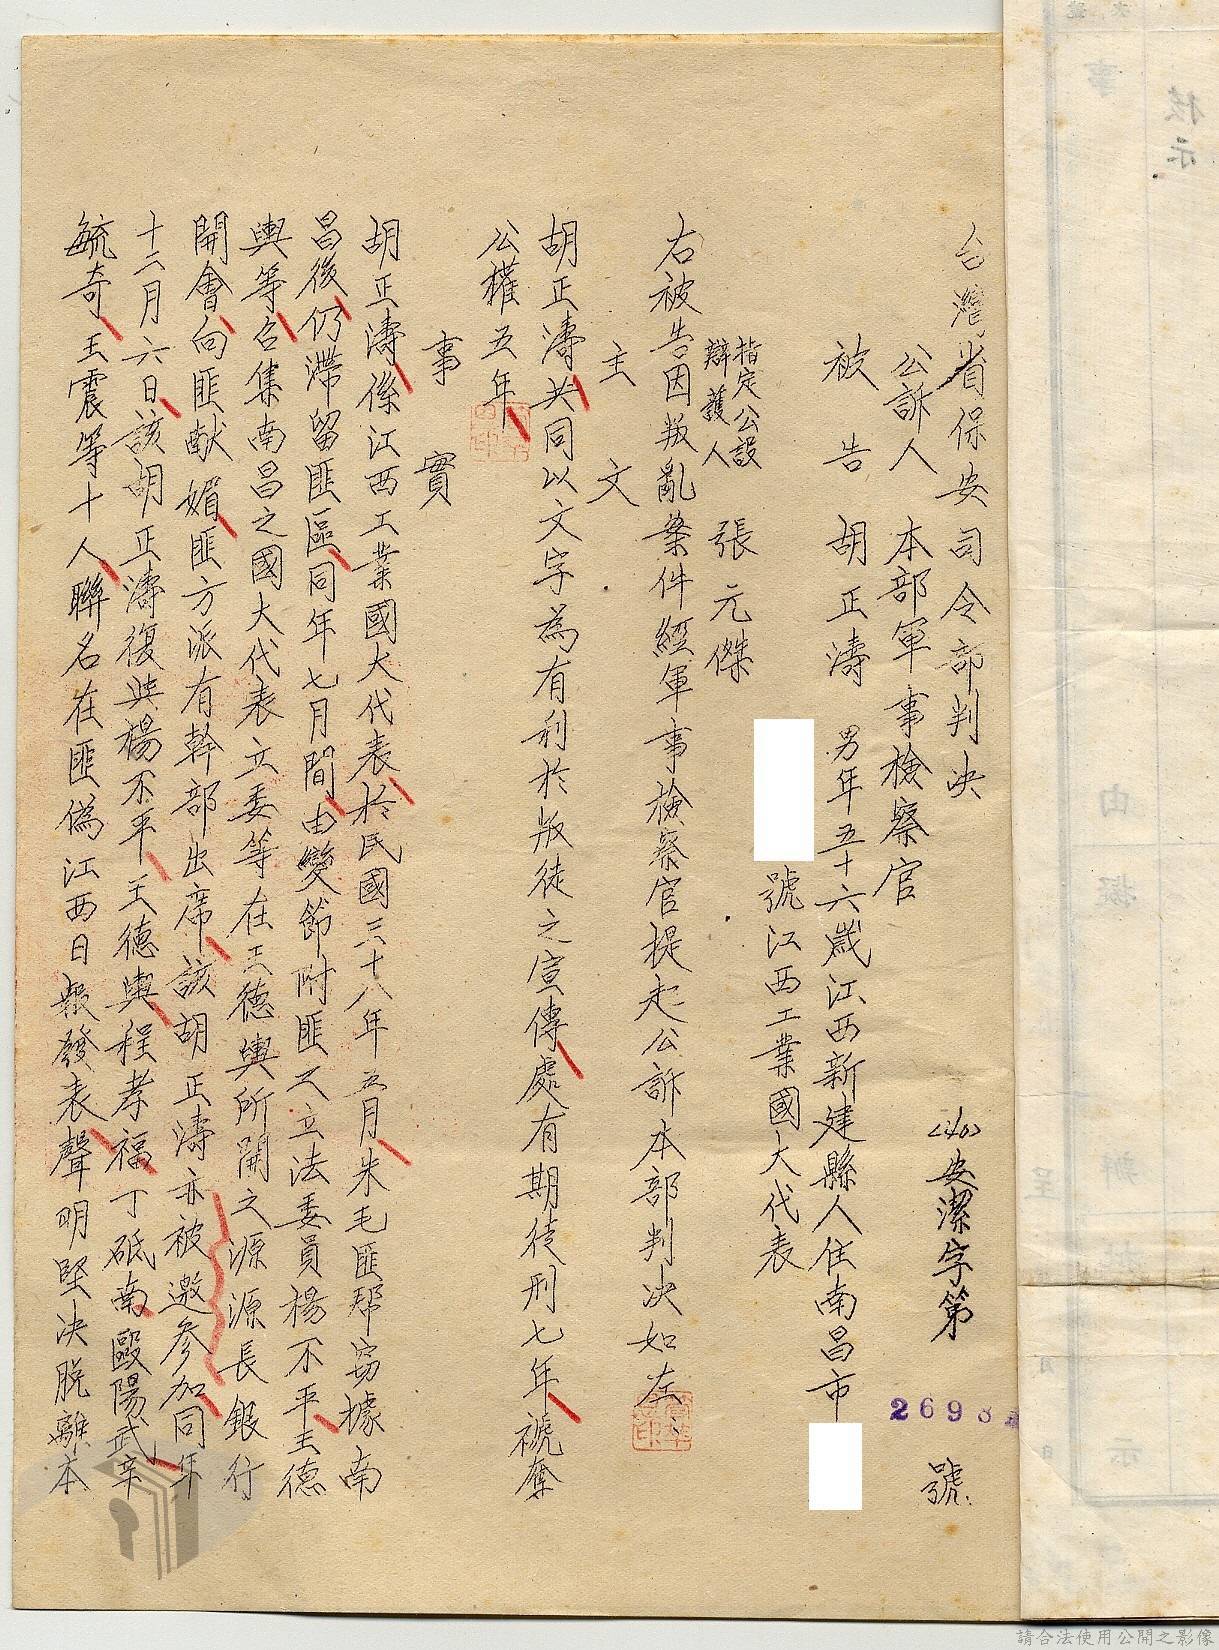 台灣省保安司令部判決
(40)安潔字第 2698 號
公訴人 本部軍事檢察官
被告 胡正濤 男年五十六歲江西新建縣人住南昌市
號江西工業國大代表
指定公設
辯護人 張元傑
右被告因叛亂案件經軍事檢察官提起公訴本部判決如左、
主文
胡正濤共同以文字為有利於叛徒之宣傳處有期徒刑七年褫奪
公權五年
事實
胡正濤係江西工業國大代表於民國三十八年五月朱毛匪幫竊據南
昌後仍滯留匪區同年七月間由變節附匪之立法委員楊不平王德
輿等召集南昌之國大代表立委等在王德輿所開之源源長銀行
開會向匪献媚匪方派有幹部出席該胡正濤亦被邀參加同年
十二月六日該胡正濤復與楊不平王德輿程孝福丁砥南歐陽武辛
毓奇王震等十人聯名在匪偽江西日報發表聲明堅決脫離本
請合法使用公開之影像